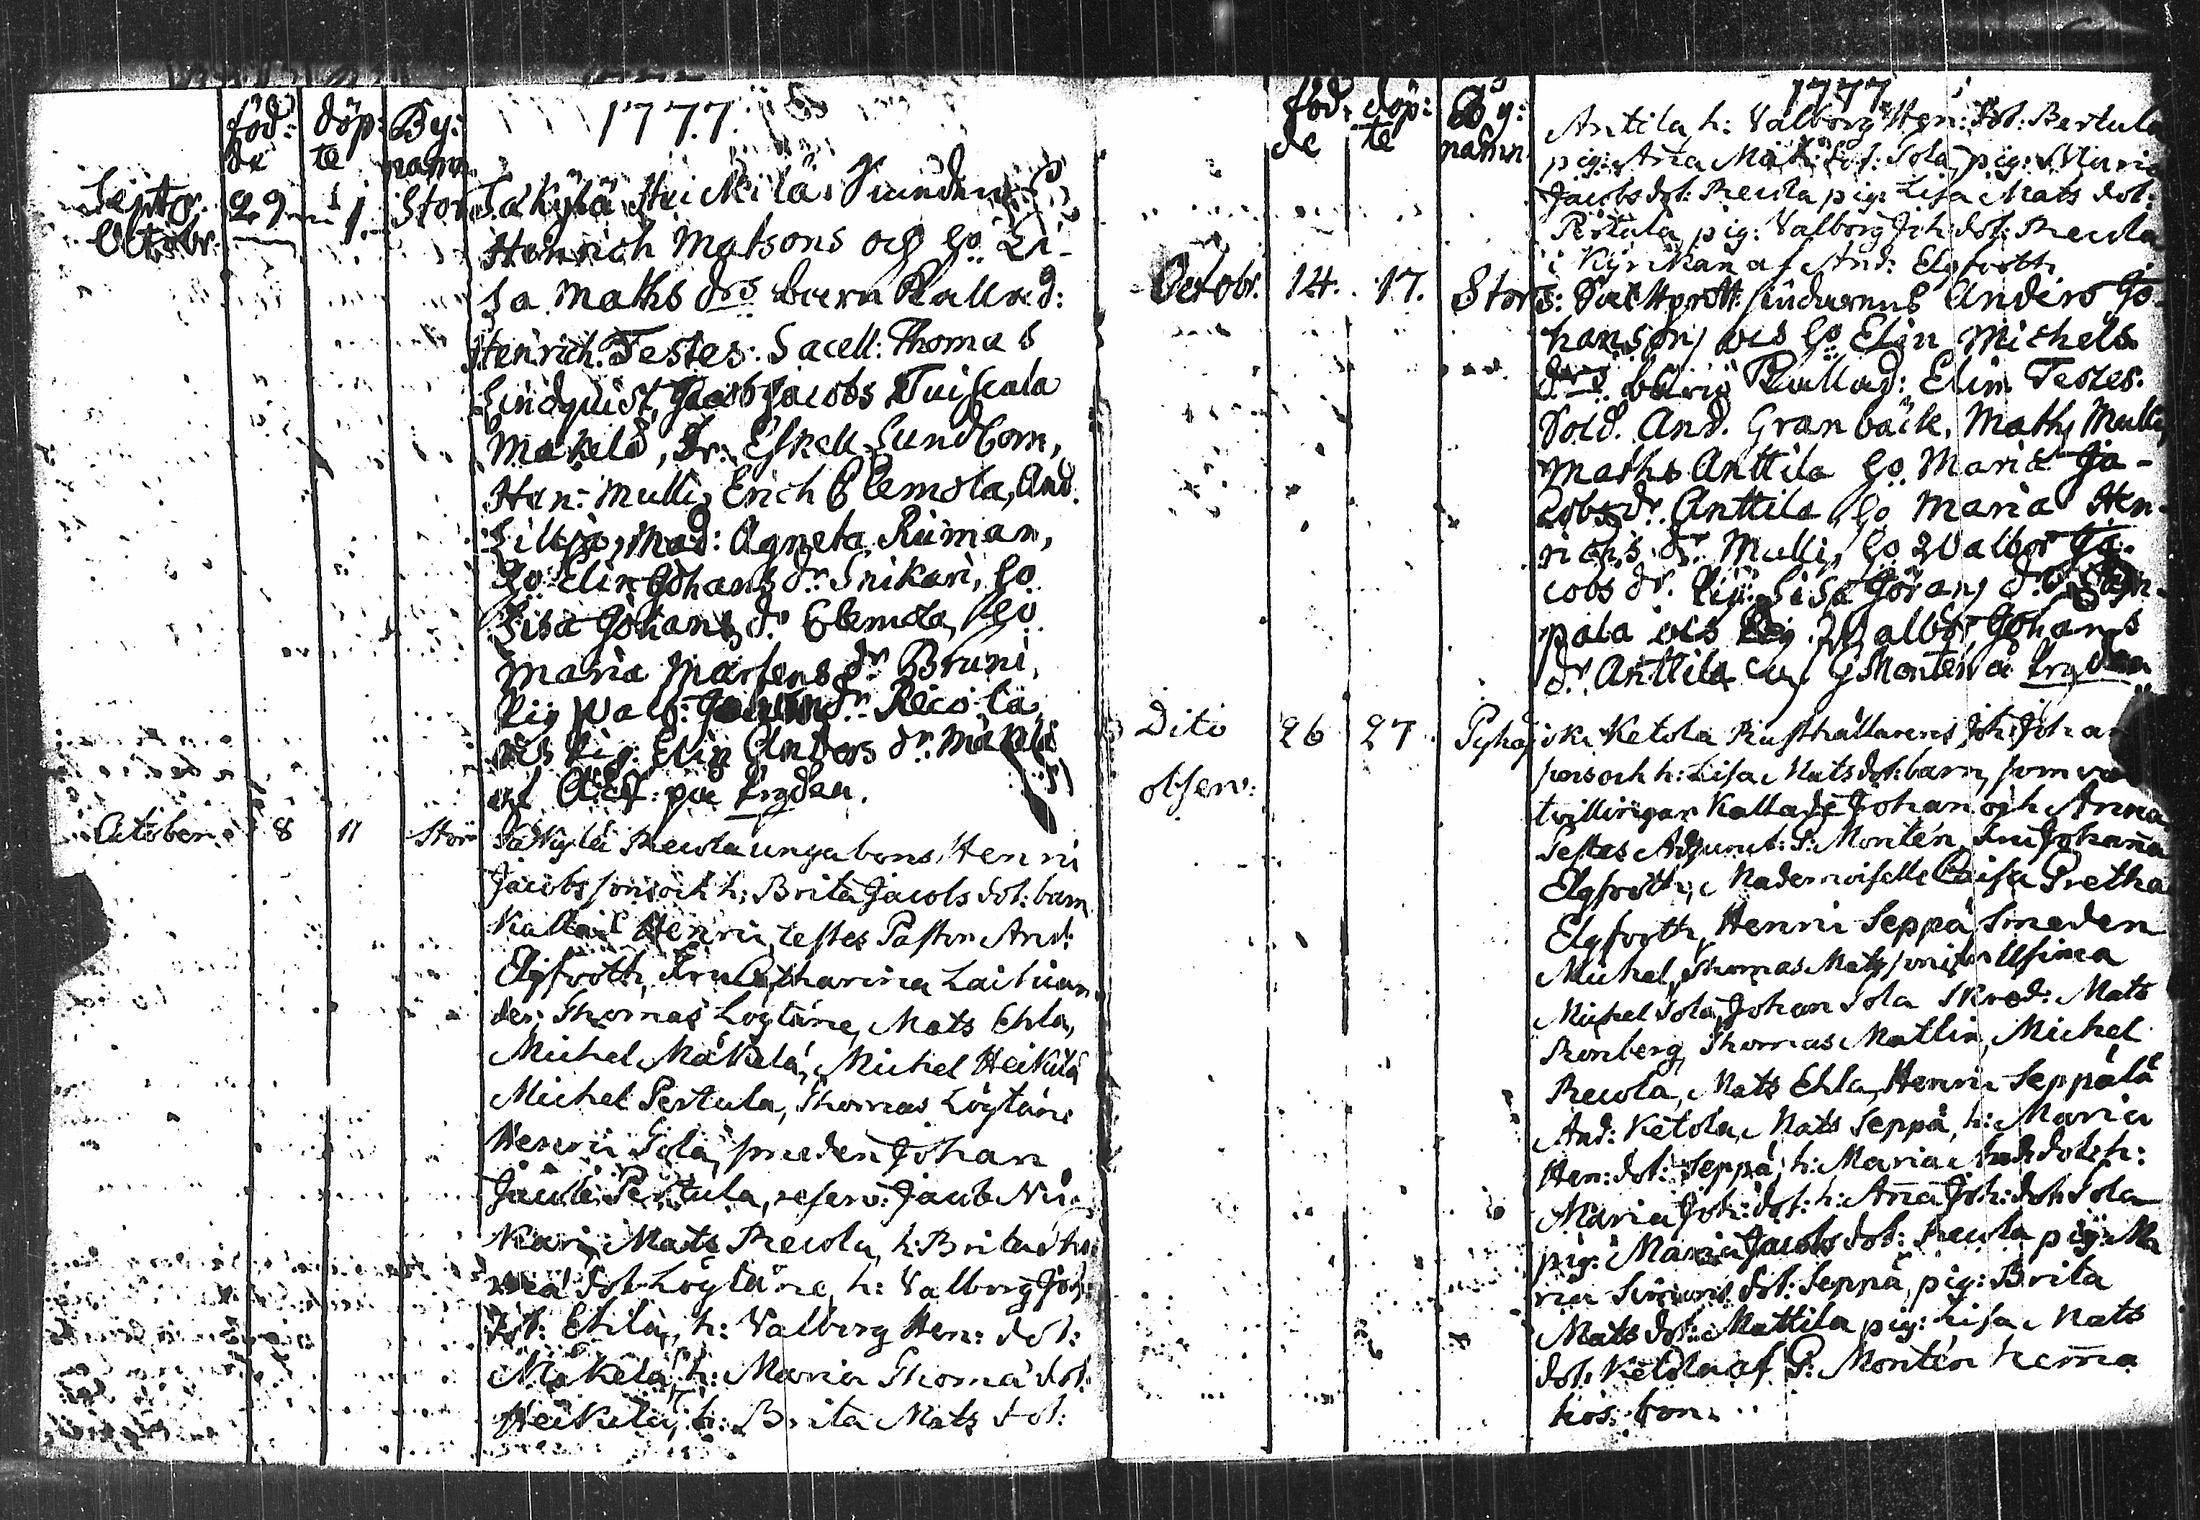 föd: döp: By: 1777.
de te namn
Septr. 29 1. Stor Säkylä Heickilä
Octobr. Henrich Matsons och ho. Li-
sa Maths drs barn kallad:
Henrich. Testes: Sacell: Thomas
Lindquist, Jacob Jacobs Tuiskala
Mäkelä, Dr. Eskell Lundbom,
Hen: Mulli, Erich Clemola, And.
Lillja, Mad: Agneta Riman,
ho Elin Johans dr Snikari, ho.
Lisa Johans dr Clemola, ho
Maria Martens dr Bruni,
Pig Walb: dr Recola
och Pig: Elin Anders dr. Mäkilä
af på Bryden.
October. 8 11 Stor Säkylä Recola unga bons Henri
Jacobs sons och h: Brita Jacobs dot: barn
Kallad Henric, testes Pastor And:
Elgfooth, Fru Catharina Laihian
der, Thomas Logtäne, Mats Ehla,
Michel Mäkelä, Michel Heikilä
Michel Pertula, Thomas Lögtäne
Henric Sola, smeden Johan
Jacob Pertula, reserv: Jacob Ni
kari, Mats Recola, h: Brita Tho
ma dot Logtäne, h: Valborg Joh:
dot: Ehla, h: Valborg Hen: dot:
Mäkelä, h: Maria Thoma dot.
Heikilä, h: Brita Mats dot:
föd: döp: By: 1777
de te namn
Antila, h: Valborg Hen: dot: Bertula
pig: Aña Mat: dot: Sola, pig: Maria
Jacobs dot: Recola pig: Lisa Mats dot:
Pertula, pig: Valborg Joh: dot: Recola
i Kyrckan af And: Elgfooth
Octobr. 14. 17. Stor S: Anders Jo-
hanson, och ho. Elin Michels
drs. barn Kallad: Elin. Testes.
Sold. And. Granbäck, Math, Mulli,
Maths Anttila ho. Maria Ja-
cobs dr. Anttila, ho Maria Hen-
richs dr. Mulli, ho Walbor Ja-
cobs dr. Pig: Lisa Göran, dr.
pala och Pig. Walbor Johans
dr. Anttila af G Montén å Bryden
Dito 26 27 Pyhäjoki Ketola Rusthållarens Joh: Johan
observ: sons och h: Lisa Mats dot: barn, som
tvillingar Kallade Johan och Anna
Testes Adjunct: G: Montén, Fru Johaña
Elgfooth, Mademoiselle Caisa Gretha
Elgfooth, Henric Seppä Smeden
Michel, Thomas Mats son
Michel Sola, Johan Sola Skrod: Mats
Renberg, Thomas Matlin, Michel
Recola, Mats Ehla, Henric Seppälä
And: Ketola, Mats Seppä, h: Maria
Hen: dot: Seppä, h: Maria And: dot: h:
Maria Joh: dot: h: Aña Joh: dot: Sola
pig: Maria Jacobs dot: Recola pig: Ma
ria Simons dot: Seppä, pig: Brita
Mats dot: Mattila pig: Lisa Mats
dot: Ketola af G: Montén hema
hos bon.